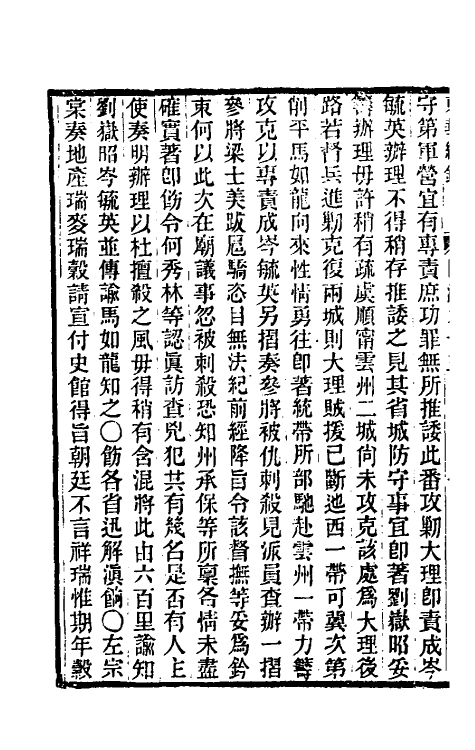 守第軍營宜有專責庶功罪無所推諉此番攻勦大理即責成岑
毓英辦理不得稍存推諉之見其省城防守事宜即著劉嶽昭妥
籌辦理毋許稍有疏虞順甯雲州二城尙未攻克該處爲大理後
路若督兵進勦克復兩城則大理賊援已斷迤西一帶可冀次第
削平馬如龍向來性情勇往即著統帶所部馳赴雲州一帶力籌
攻克以專責成岑毓英另摺奏參將被仇刺殺見派員查辦一摺
參將梁士美跋扈驕恣目無法紀前經降旨令該督撫等妥爲鈐
束何以此次在廟議事忽被刺殺恐知州承保等所稟各情未盡
確實著即飭令何秀林等認眞訪查兇犯共有幾名是否有人主
使奏明辦理以杜擅殺之風毋得稍有含混將此由六百里諭知
劉嶽昭岑毓英並傳諭馬如龍知之〇飭各省迅解滇餉〇左宗
棠奏地產瑞麥瑞穀請宣付史館得旨朝廷不言祥瑞惟期年穀